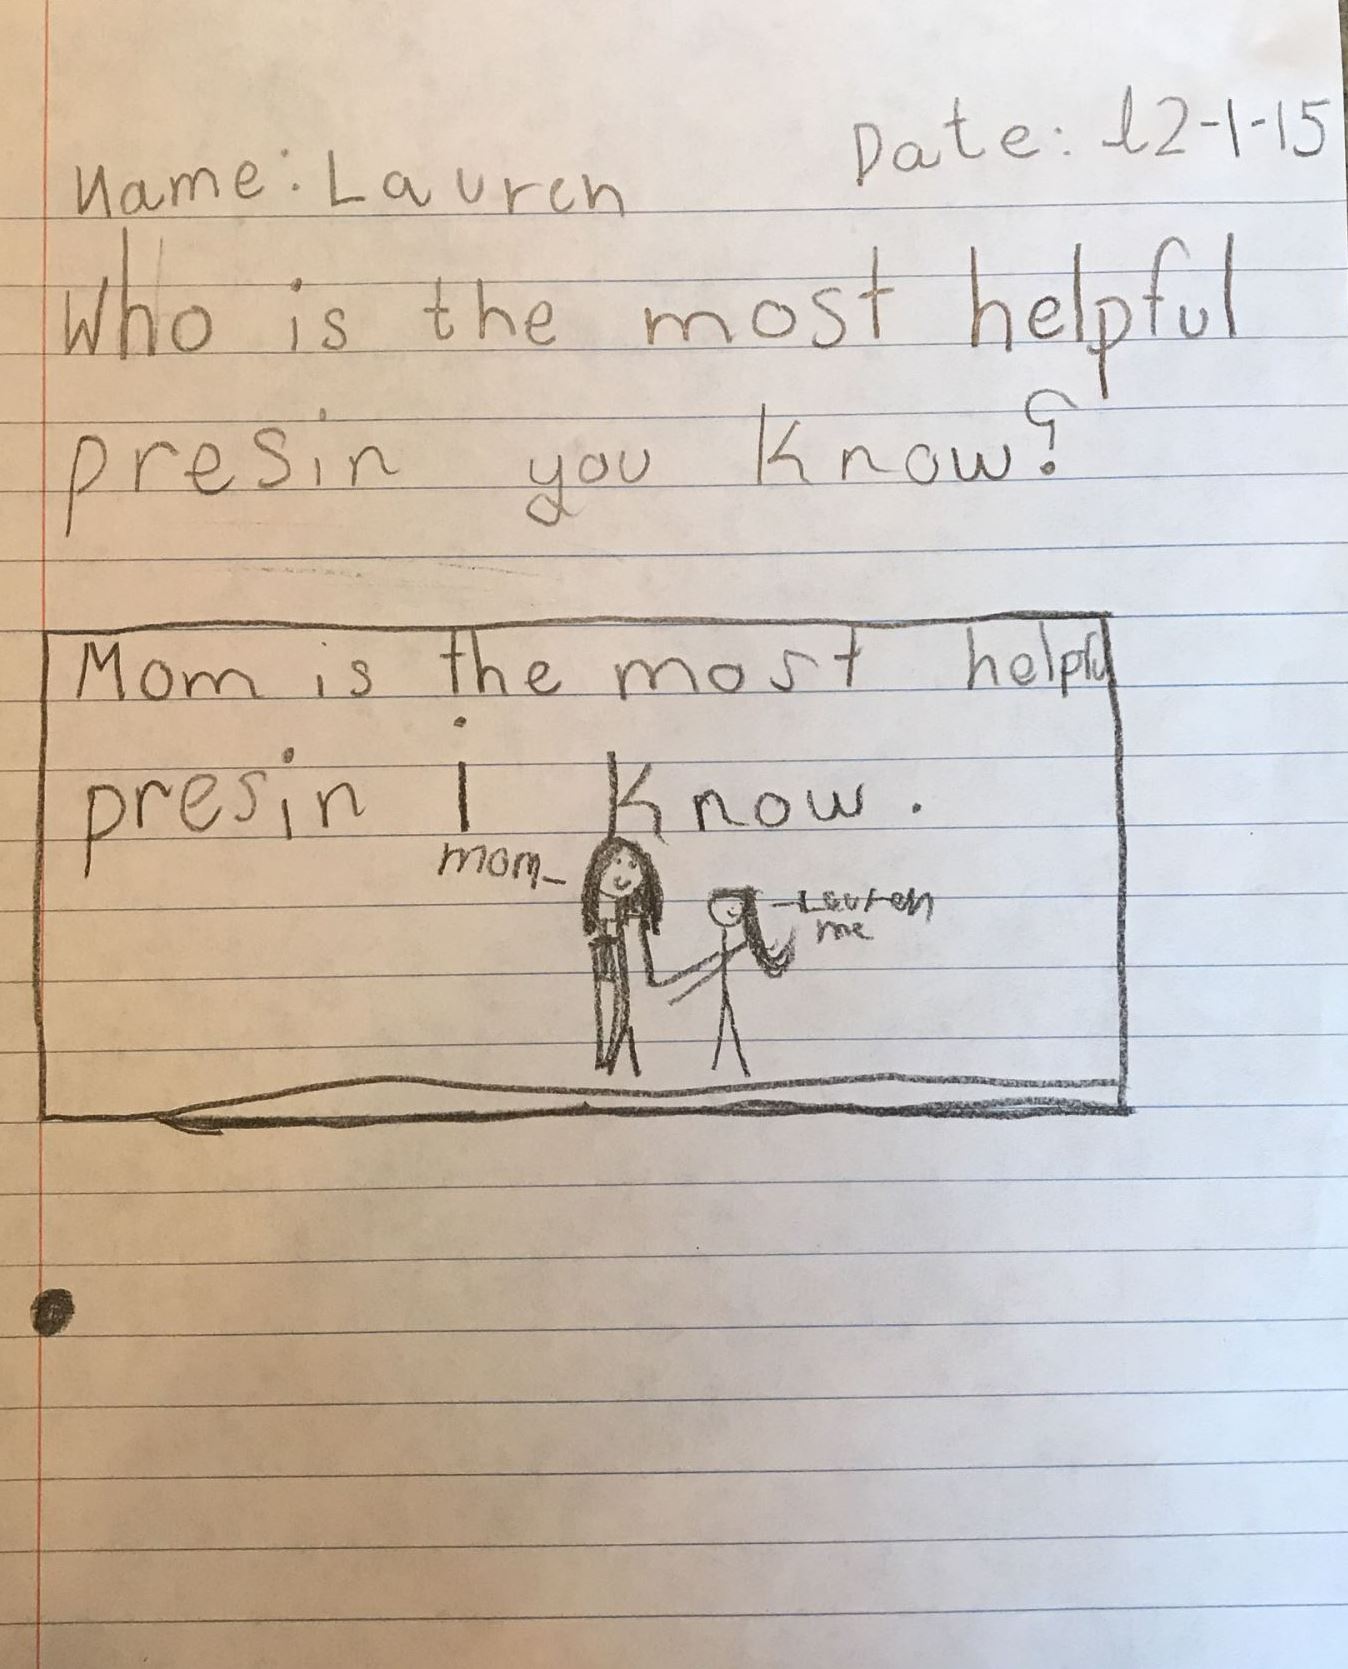 Name: Lauren
Date: 12-1-15
Who is the most helpful
presin you know?
Mom is the most helpful
presin i know.
mom-
-Lauren
me